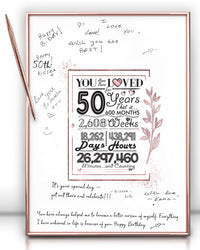 Happy
B-Day!
I
LOVE
YOU.
Love!
Wish you the
BEST!
Happy
50th
Love you
YOU Have Been LOVED
50 for Years
that is
600 MONTHS
2,608 Weeks
18,262 438,291
Days & Hours
26,297,460
Minutes... and Counting
It's your special day -
get out there and celebrate!!!
With Love
You have always helped me to become a better version of myself. Everything
I have achieved in life is because of you. Happy Birthday